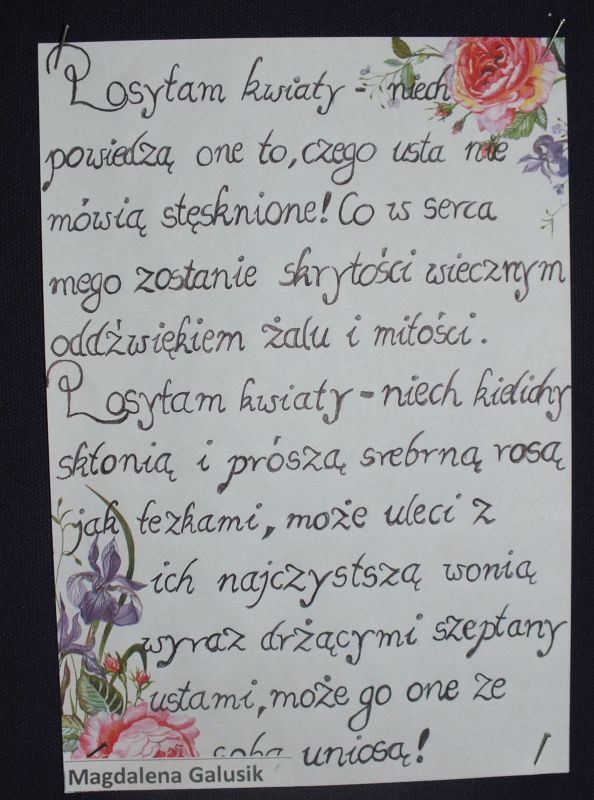 Posyłam kwiaty - niech
powiedzą one to, czego usta nie
mówią stęsknione! Co w serca
mego zostanie skrytości wiecznym
oddźwiękiem żalu i miłości.
Posyłam kwiaty - niech kielichy
skłonią i prószą srebrną rosą
jak łezkami, może uleci z
ich najczystszą wonią
wyraz drżącymi szeptany
ustami, może go one ze
sobą uniosą!
Magdalena Galusik